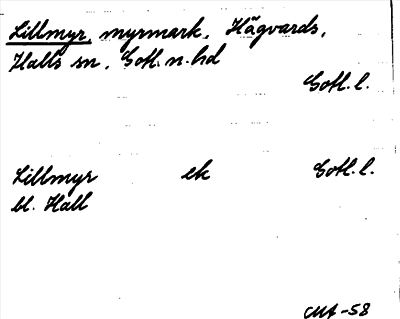 Lillmyr, myrmark, Hägvards,
Halls sn, Gotl. n. hd
Gotl. l.
Lillmyr ek Gotl. l.
bl. Hall
-58